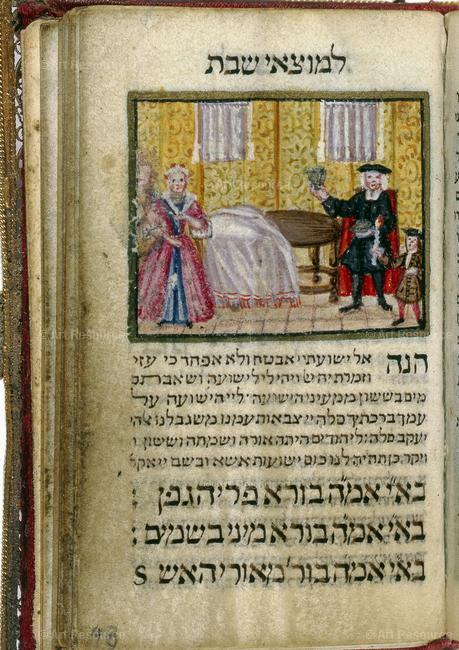 למוצאי שבת
הנה אל ישועתי אבטח ולא אפחד כי עזי
וזמרת יה יי ויהי לי לישועה ושאבתם
מים בששון ממעיני הישועה : ליי הישועה על
עמך ברכתך סלה יי צבאות עמנו משגב לנו אלהי
יעקב סלה ליהודים היתה אורה ושמחה וששון ו
ויקר כן תהיה לנו כוס ישועות אשא ובשם יי אקר
באי אמה בורא פרי הגפן :
באי אמה בורא מיני בשמים :
באי אמה בור' מאורי האש S
© Art Resource